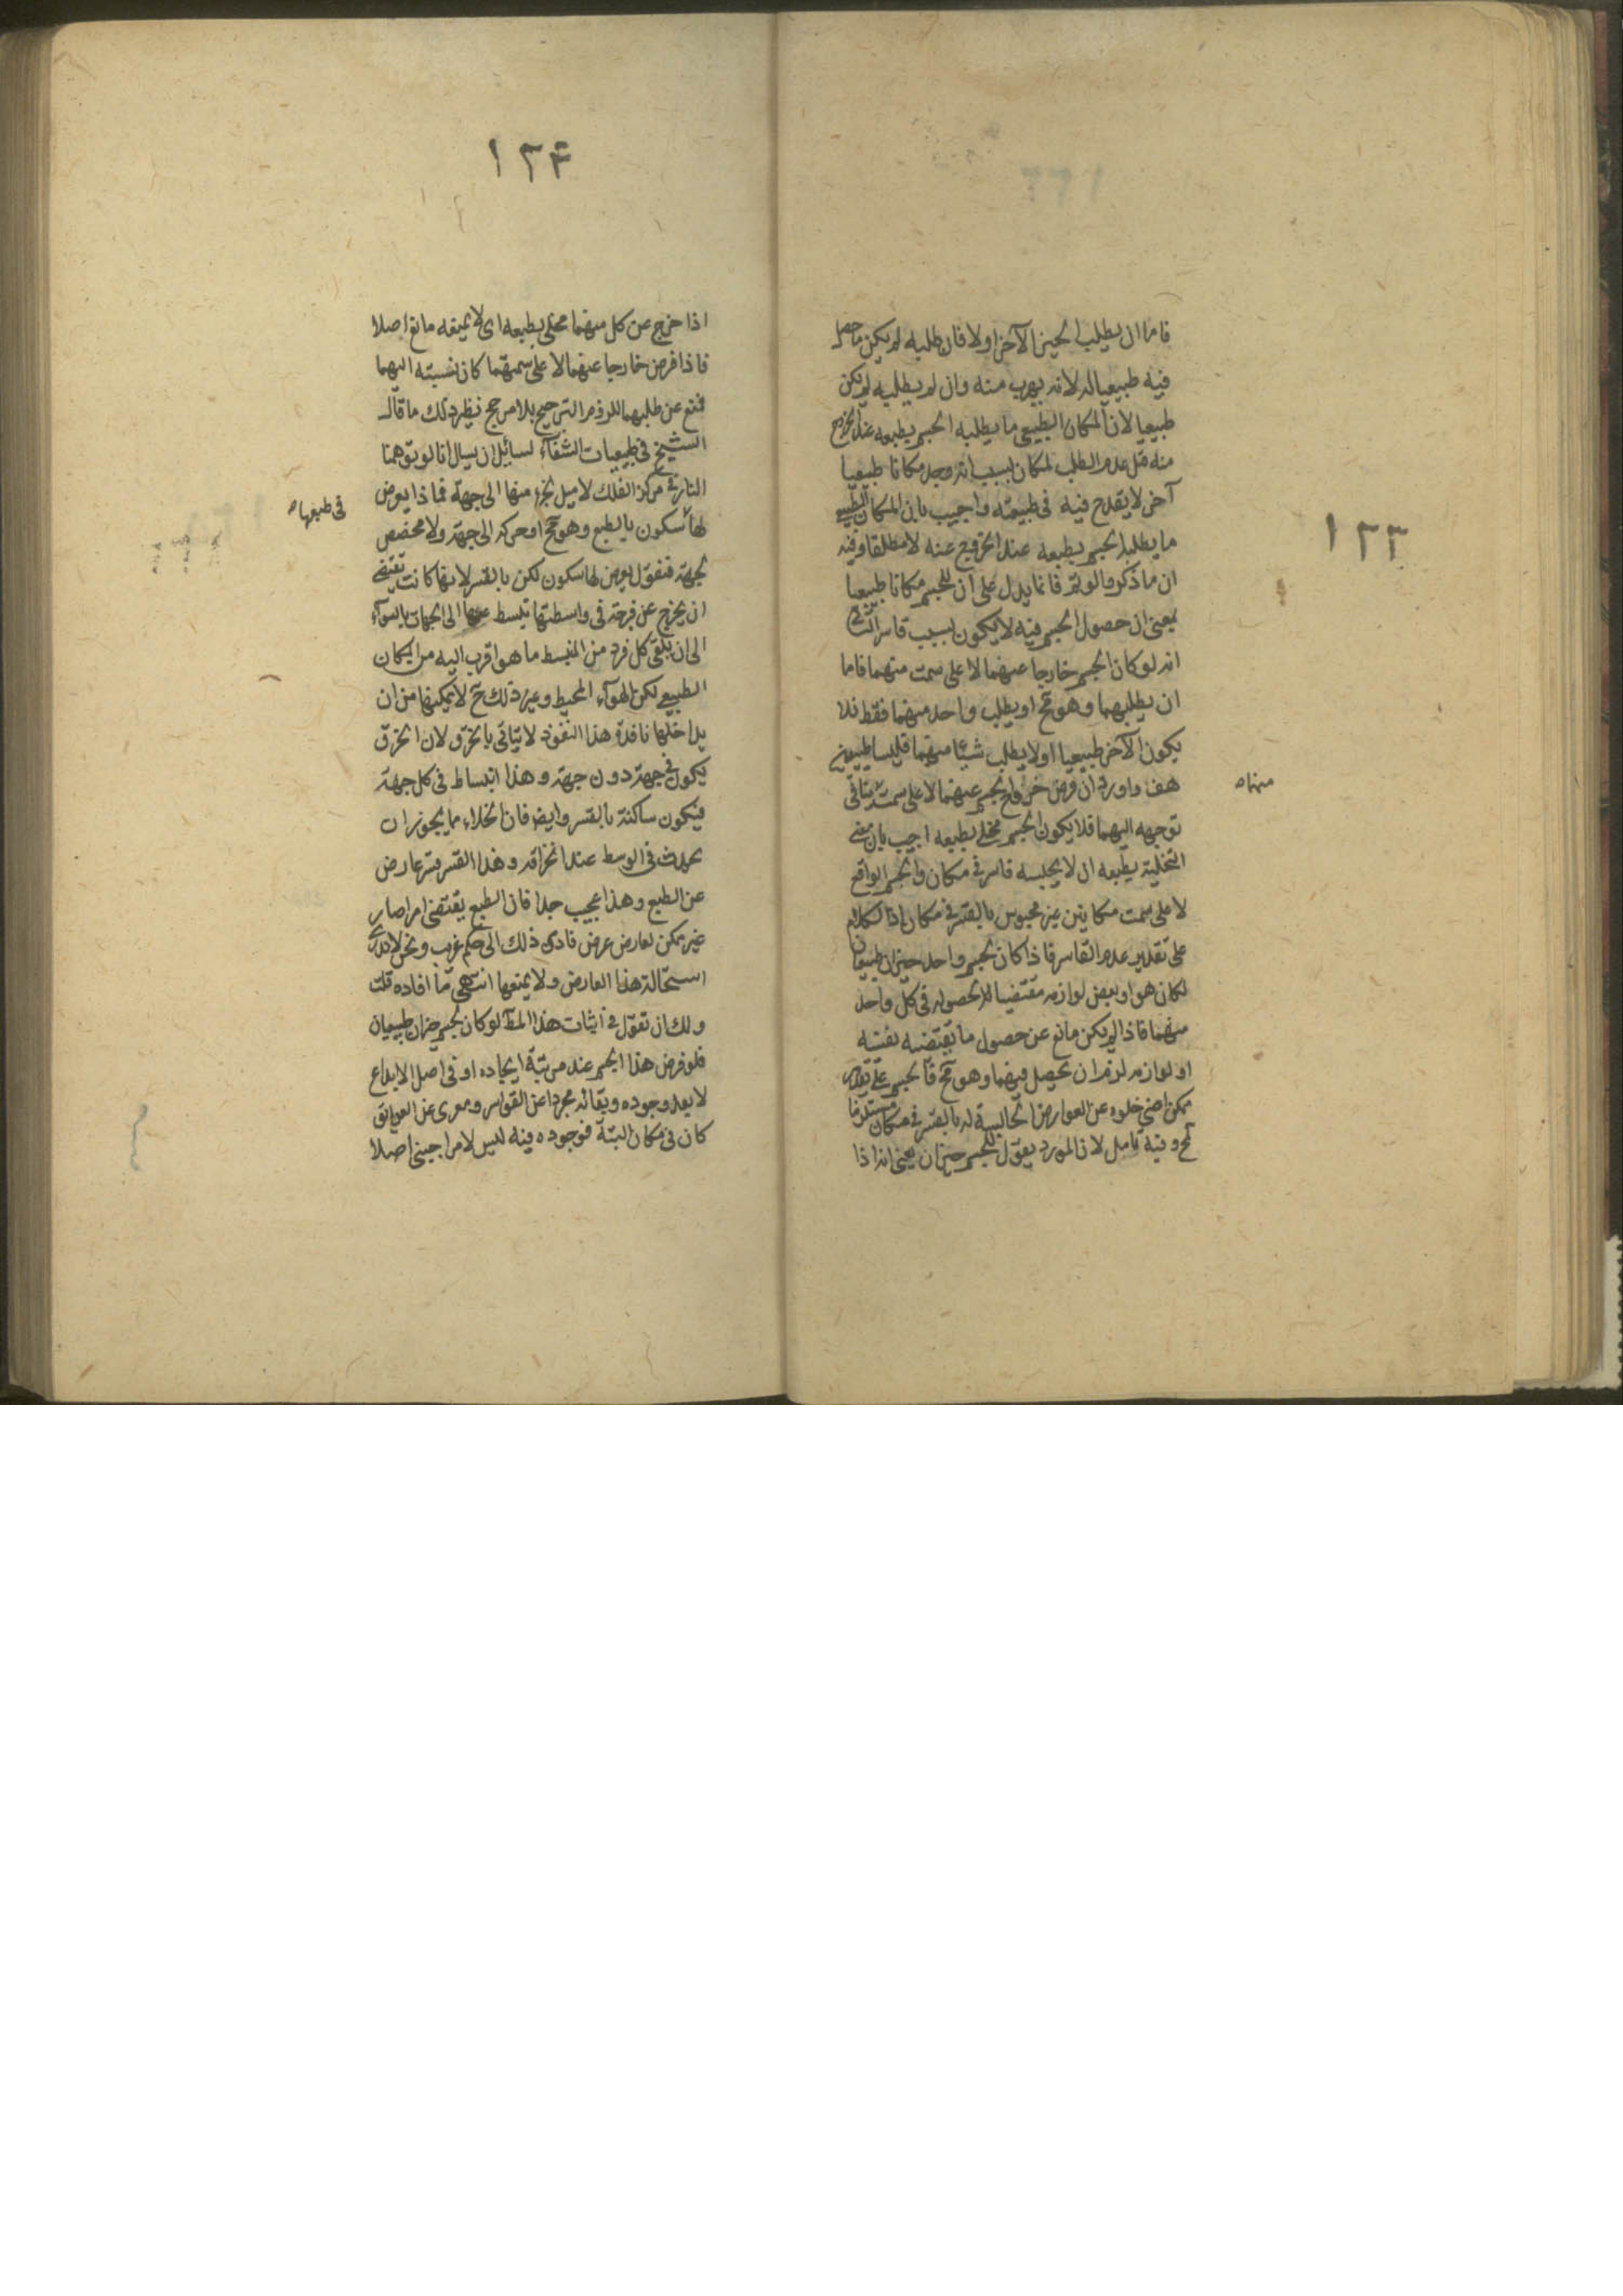 ١٢٣
فاما ان يطلب الحيز الآخر اولا فان طلبه لم يكن ما حصل
فيه طبيعيا له لانه يهرب منه وان لم يطلبه لم يكن
طبيعيا لان المكان الطبيعى ما يطلبه الجسم بطبعه عند الخروج
منه قيل عدم الطلب لمكان بسبب انه وجد مكانا طبيعيا
آخر لا يقدح فيه فى طبيعته واجيب بان المكان الطبيعى
ما يطلبه الجسم بطبعه عند الخروج عنه لا مطلقا وفيه
ان ما ذكر لو تم فانما يدل على ان للجسم مكانا طبيعيا
بمعنى ان حصول الجسم فيه لا يكون بسبب قاسر الثانى
انه لو كان الجسم خارجا عنهما لا على سمت منهما فاما
ان يطلبهما وهو مح او يطلب واحد منهما فقط فلا
يكون الآخر طبيعيا اولا يطلب شيئا منهما فليسا طبيعيين
هف واورد ان فرض خروج الجسم عنهما لا على سمت ينافى
منهما ه
توجهه اليهما فلا يكون الجسم مخلى بطبعه اجيب بان معنى
التخلية بطبعه ان لا يحبسه قاسر فى مكان والجسم الواقع
لا على سمت مكانين غير محبوس بالقسر فى مكان اذ الكلام
على تقدير عدم القاسر فاذا كان لجسم واحد حيزان طبيعيان
لكان هو او بعض لوازمه مقتضيا لحصوله فى كل واحد
منهما فاذا لم يكن مانع عن حصول ما تقتضيه نفسه
او لوازمه لزم ان يحصل فيهما وهو مح فالجسم على تقدير
ممكن اعنى خلوه عن العوارض الحابسة له بالقسر فى مكان مستلزما
لمح وفيه تامل لان المورد يقول للجسم حيزان يعنى انه اذا
١٢۴
اذا خرج عن كل منهما مخلى بطبعه اى لا يعيقه مانع اصلا
فاذا فرض خارجا عنهما لا على سمتهما كان نسبته اليهما
فمنع عن طلبهما للزوم الترجيح بلا مرجح نظير ذلك ما قال
الشيخ فى طبيعيات الشفاء لسائل ان يسال انا لو توهمنا
النار فى مركز الفلك لا ميل لجزء منها الى جهة فماذا يعرض
فى طبعها ه
لها سكون بالطبع وهو مح او حركة الى جهة ولا مخصص
لجهة فنقول يعرض لها سكون لكن بالقسر لانها كانت تقتضى
ان يخرج عن فرجة فى واسطتها تبسط عنها الى الجهات بالسواء
الى ان يلقى كل فرد من المنبسط ما هو اقرب اليه من المكان
الطبيعى لكن الهواء المحيط وغير ذلك ح لا يمكنها من ان
يداخلها نافذة هذا النفوذ لا يتاتى بالخرق لان الخرق
يكون فى جهة دون جهة وهذا انبساط فى كل جهة
فيكون ساكنة بالقسر وايضا فان الخلاء مما يجوز ان
يحدث فى الوسط عند انخراقه وهذا القسر قسر عارض
عن الطبع وهذا عجيب جدا فان الطبع يقتضى امرا صار
غير ممكن لعارض عرض فادى ذلك الى حكم غريب ونحن لا ندرى
استحالة هذا العارض ولا يمنعها انتهى ما افاده قلت
ولك ان تقول فى اثبات هذا المط لو كان لجسم حيزان طبيعيان
فلو فرض هذا الجسم عند مرتبة ايجاده او فى اصل الابداع
لا بعد وجوده وبقائه مجردا عن القواسر ومعرى عن العوايق
كان فى مكان البتة فوجوده فيه ليس لامر اجنبى اصلا